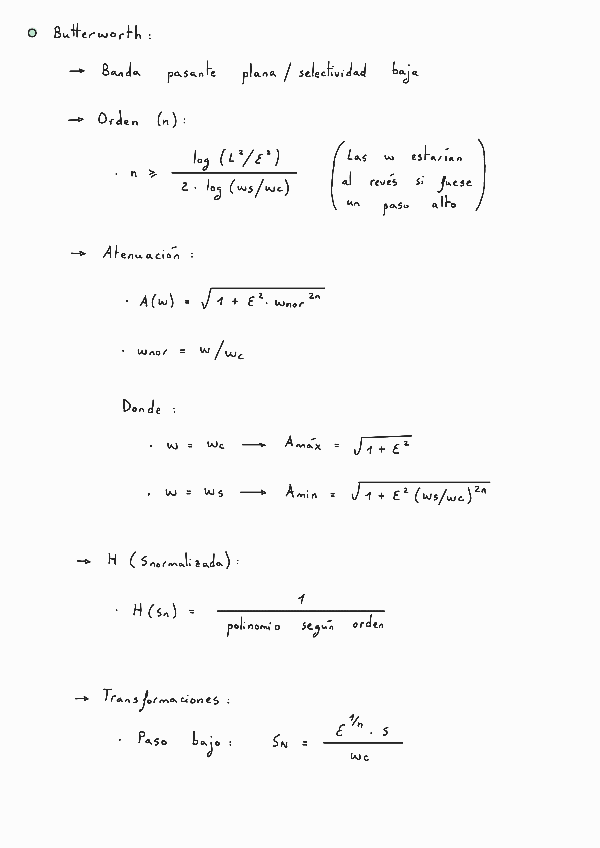 Butterworth :
→ Banda pasante plana / selectividad baja
→ Orden (n) :
· n ≥ log (L²/ε²) / 2 · log (ws/wc) (Las w estarían
al revés si fuese
un paso alto)
→ Atenuación :
· A(w) = √(1 + ε² · wnor²ⁿ)
· wnor = w/wc
Donde :
· w = wc → Amáx = √(1 + ε²)
· w = ws → Amin = √(1 + ε² (ws/wc)²ⁿ)
→ H (Snormalizada) :
· H(Sn) = 1 / polinomio según orden
→ Transformaciones :
· Paso bajo : SN = ε^(1/n) · s / wc